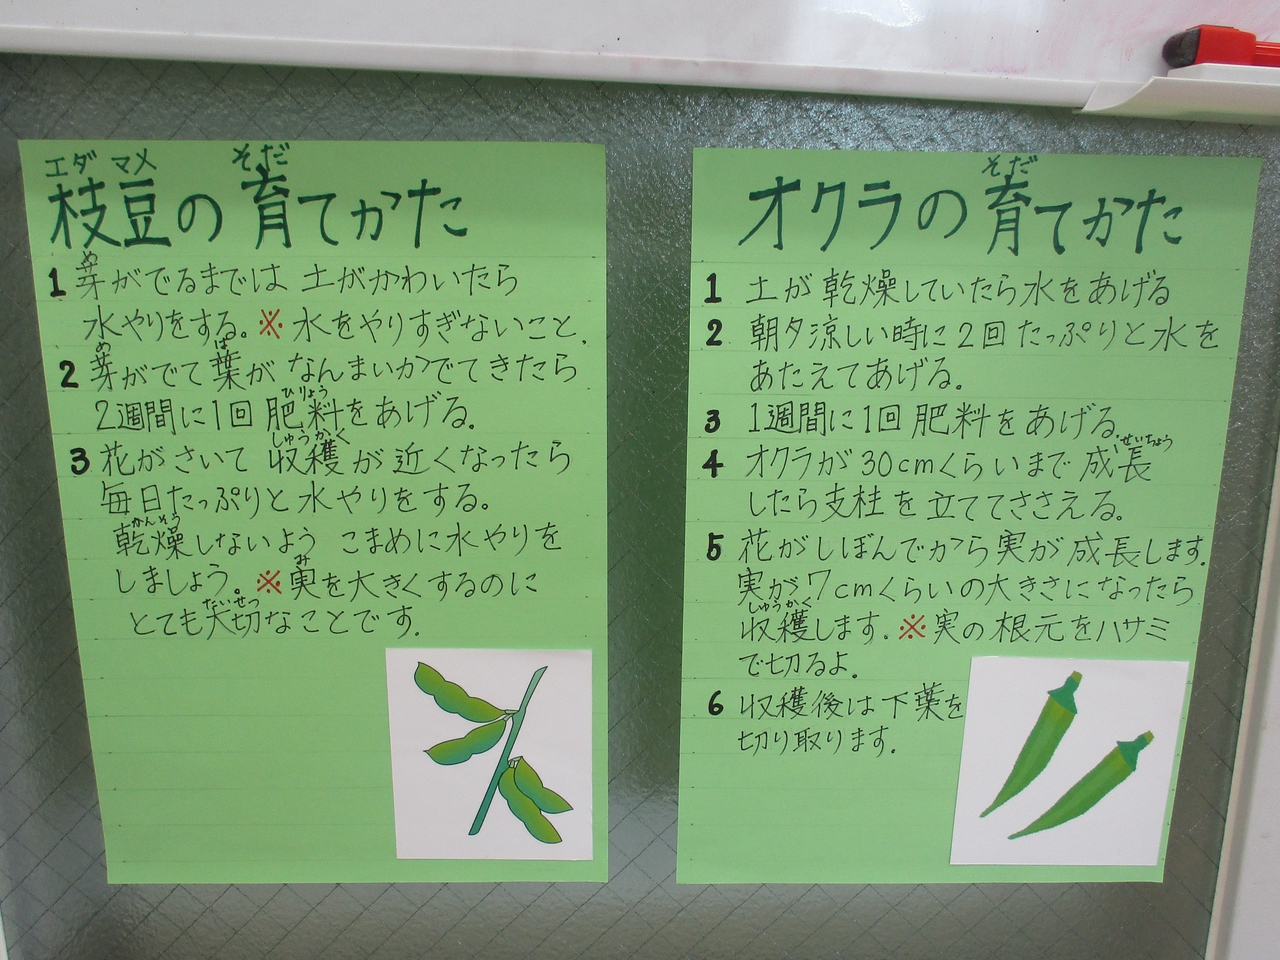 エダ マメ そだ
枝豆の育てかた
1 芽がでるまでは 土がかわいたら
め
水やりをする。※ 水をやりすぎないこと.
2 芽がでて葉が なんまいかでてきたら
め は
2週間に1回 肥料をあげる.
ひりょう
3 花がさいて 収穫が近くなったら
しゅうかく
毎日たっぷりと水やりをする。
乾燥しないよう こまめに水やりを
かんそう
しましょう。※ 実を大きくするのに
み
とても大切なことです.
たいせつ
そだ
オクラの育てかた
1 土が乾燥していたら水をあげる
2 朝夕涼しい時に2回たっぷりと水を
あたえてあげる.
3 1週間に1回肥料をあげる.
4 オクラが30cmくらいまで成長
せいちょう
したら支柱を立ててささえる.
5 花がしぼんでから実が成長します.
実が7cmくらいの大きさになったら
収穫します.※実の根元をハサミ
しゅうかく
で切るよ.
6 収穫後は下葉を
切り取ります.